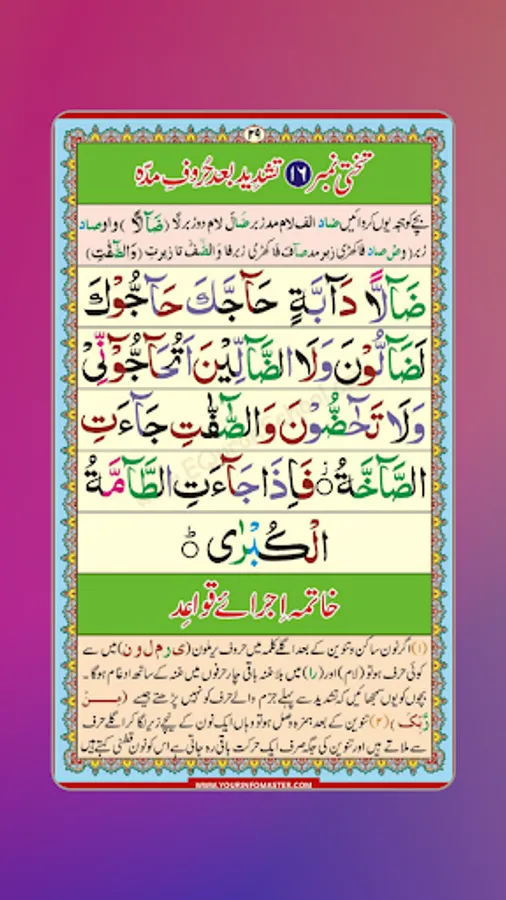 ۲۹
تختی نمبر ۱۶ تشدید بعد حُروفِ مدّہ
بچے کو ہجے یوں کروائیں ضاد الف لام مد زبر ضَآلْ لام دو زبر لًا (ضَآلًّا) واو صاد
زبر (وَصْ صاد فا کھڑی زبر مد صٰٓف فا کھڑی زبر فا وَالصّٰٓفّٰ تا زیر تِ (وَالصّٰٓفّٰتِ)
ضَآلًّا دَآبَّةٍ حَآجَّكَ حَآجُّوْكَ
لَضَآلُّوْنَ وَلَا الضَّآلِّيْنَ اَتُحَآجُّوْٓنِّىْ
وَلَا تَحٰٓضُّوْنَ وَالصّٰٓفّٰتِ جَآءَتِ
الصَّآخَّةُ فَاِذَا جَآءَتِ الطَّآمَّةُ
الْكُبْرٰى
خاتمہ اِجرائے قواعِد
(۱) اگر نون ساکن و تنوین کے بعد اگلے کلمہ میں حروف یرملون (ی ر م ل و ن) میں سے
کوئی حرف ہو تو (لام) اور (را) میں بلا غنہ باقی چار حرفوں میں غنہ کے ساتھ ادغام ہوگا۔
بچوں کو یوں سمجھائیں کہ تشدید سے پہلے جزم والے حرف کو نہیں پڑھتے جیسے (مِنْ
رَّبِّكَ) (۲) تنوین کے بعد ہمزہ وصل ہو تو وہاں ایک نون کے نیچے زیر لگا کر اگلے حرف
سے ملاتے ہیں اور تنوین کی جگہ صرف ایک حرکت باقی رہ جاتی ہے اس کو نون قطنی کہتے ہیں
WWW.YOURINFOMASTER.COM